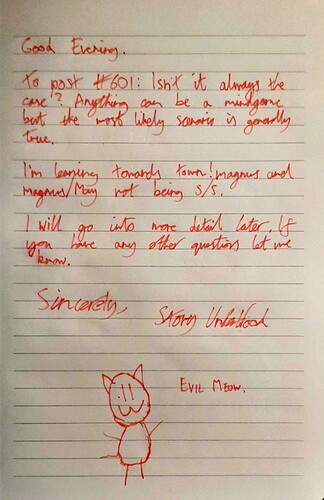 Good Evening.
To post #601: Isn't it always the
case? Anything can be a mindgame
but the most likely scenario is generally
true.
I'm leaning towards town!magnus and
magnus/May not being S/S.
I will go into more detail later. If
you have any other questions let me
know.
Sincerely,
Story Underblood
EVIL MEOW.